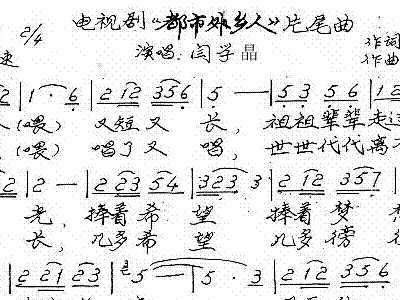 2/4 电视剧《都市外乡人》片尾曲
演唱:闫学晶 作词
速 作曲
2 | 1 · 6 | 2 12 356 | 5 — | 5 3 5 6 | 12
(喂) 又短又 长, 祖祖辈辈走过
(喂) 唱了又 唱, 世世代代离不
2 | 2 — | 2 23 54 | 323 3 · | 2 12 357 |
老, 捧着希 望 捧着梦 想
长, 几多希 望 几多徬 徨
| 2 21 23 | 5 — | 5 · 3 | 2 12 356 |